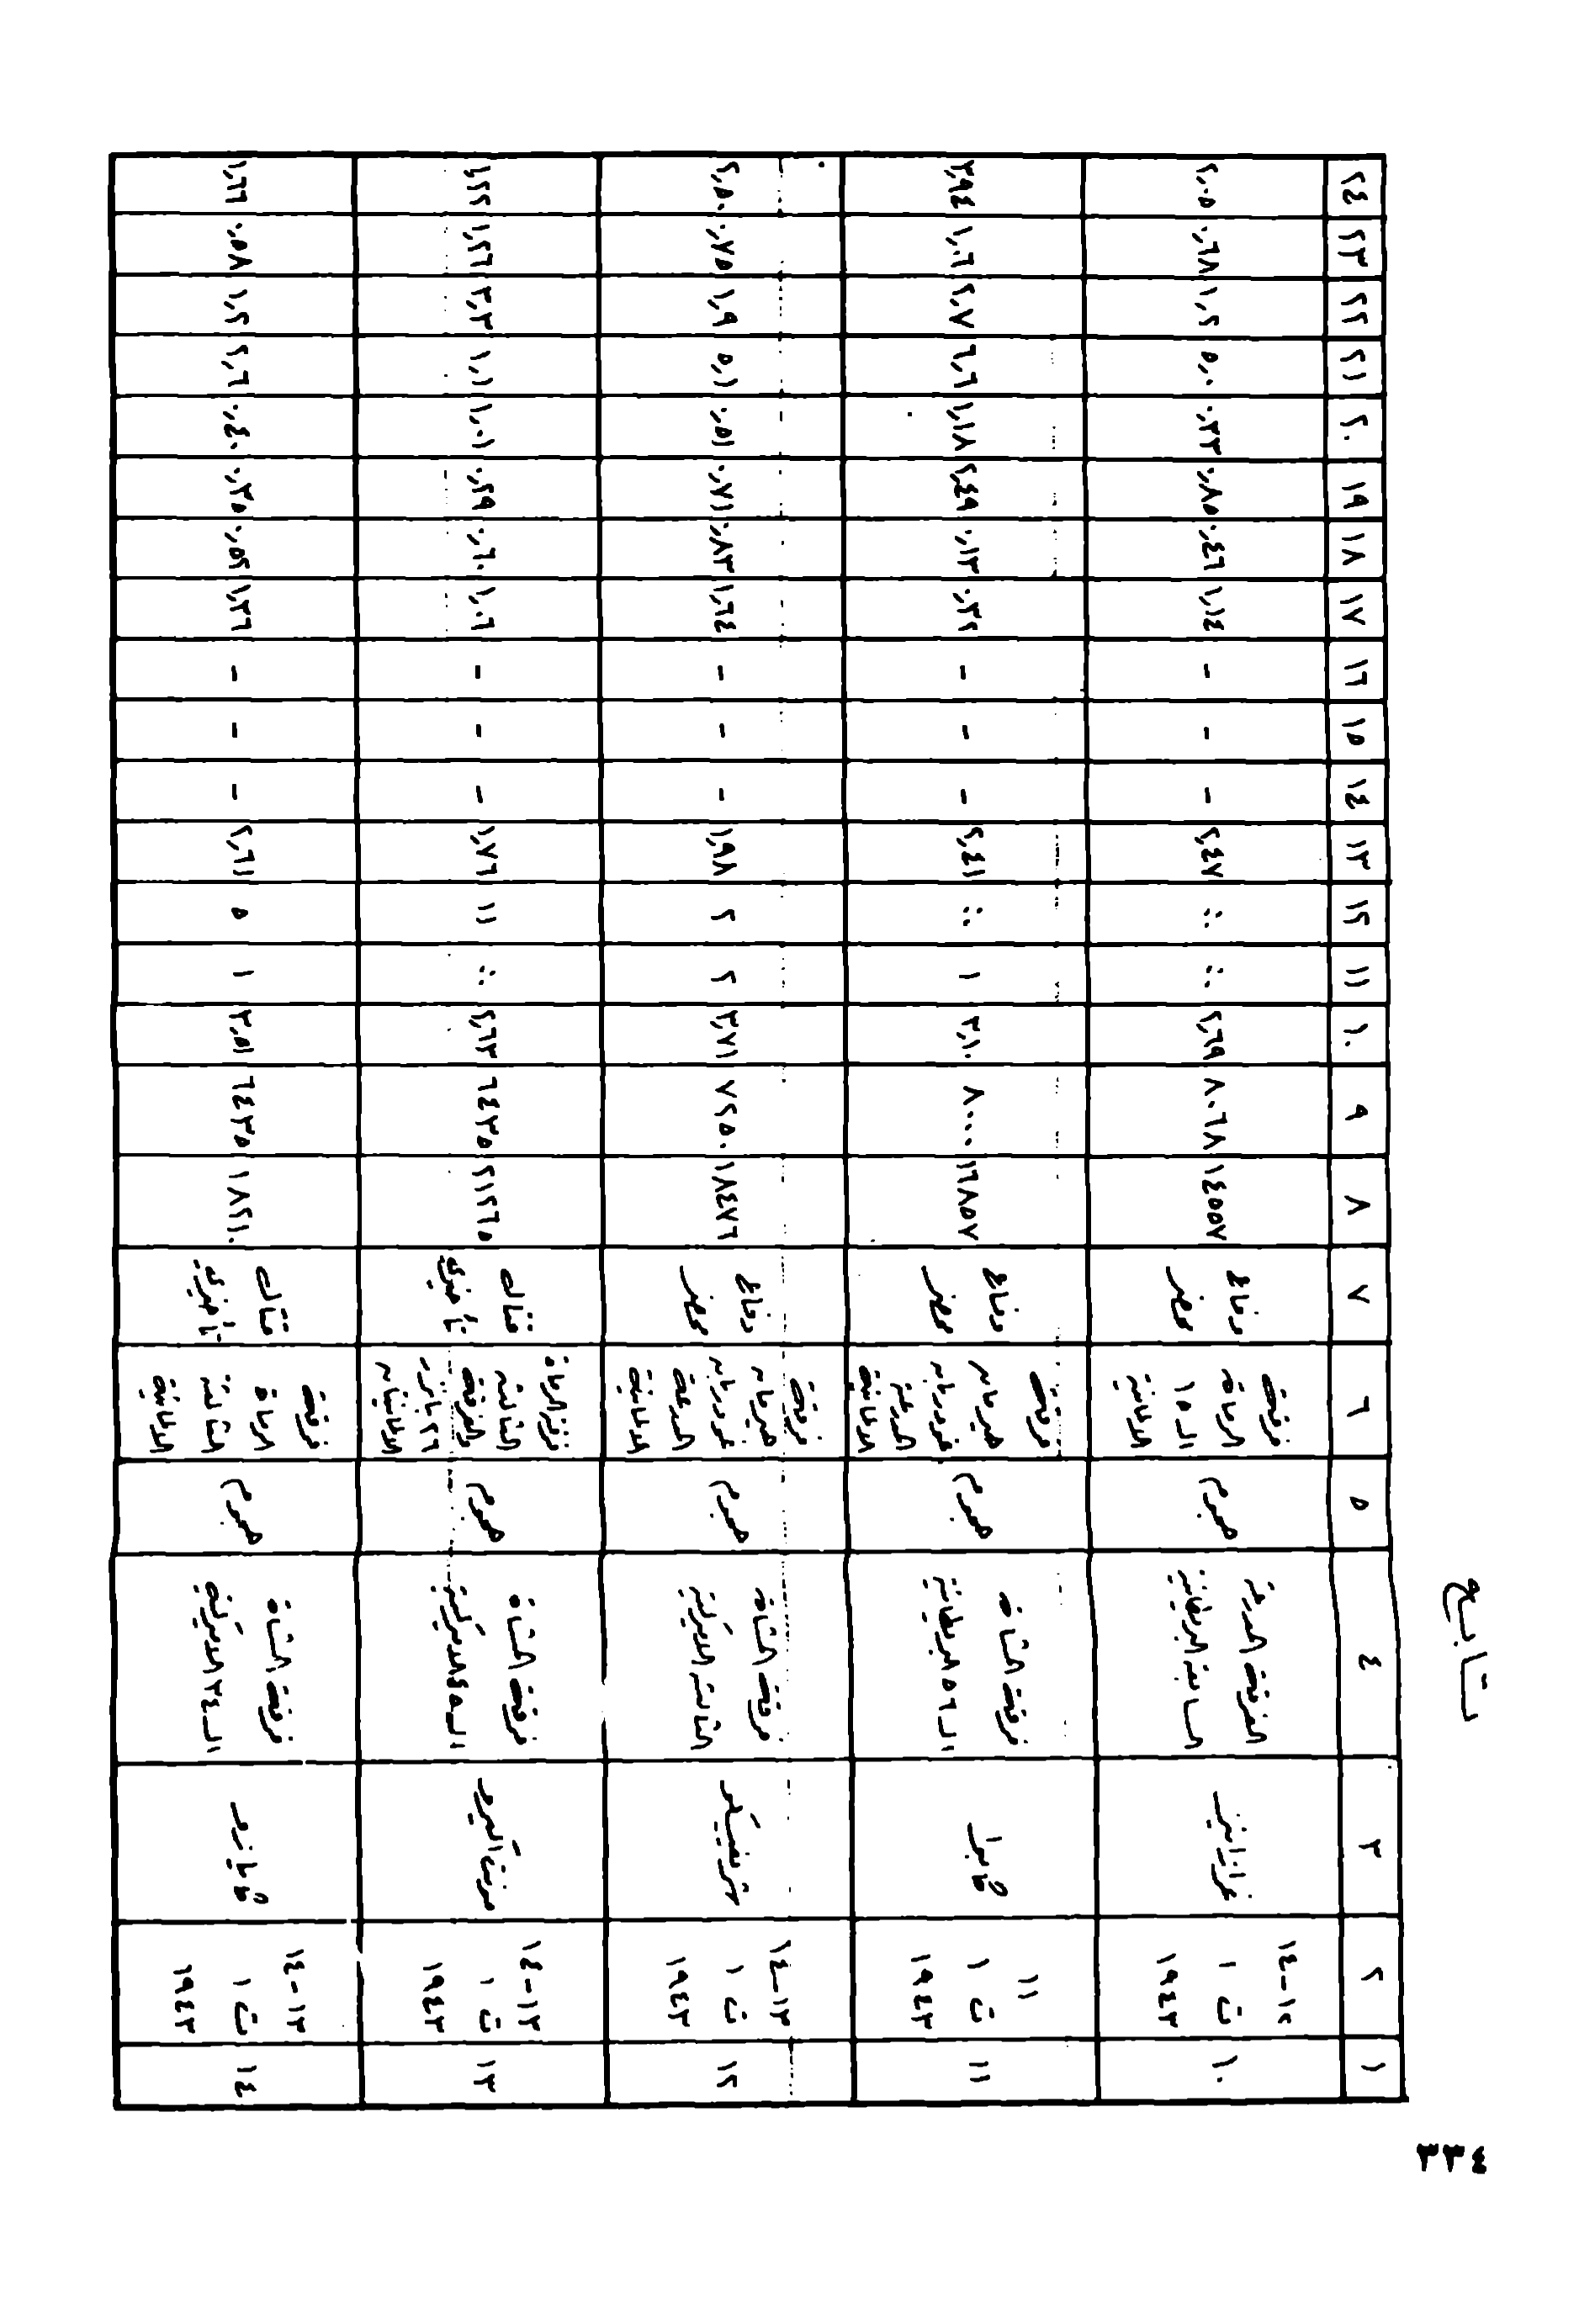 تابع
١ ٢ ٣ ٤ ٥ ٦ ٧ ٨ ٩ ١٠ ١١ ١٢ ١٣ ١٤ ١٥ ١٦ ١٧ ١٨ ١٩ ٢٠ ٢١ ٢٢ ٢٣ ٢٤
١٠
١٢-١٤
ت ١
١٩٤٣
غرازانيز
الفرقة المدرعة
السابعة البريطانية
هجوم
فرقة
الرماة
الـ ١٥
الالمانية
دفاع
محضر
١٤٥٥٧ ٨٠٦٨ ٢,٦٩ ∴ ∴ ٢,٤٧ - - - ١,١٤ ٠,٤٦ ٠,٨٥ ٠,٣٣ ٥,٠ ١,٢ ٠,٦٨ ٢,٠٥
١١
١١
ت ١
١٩٤٣
كابوا
فرقة المشاة
الـ ٥٦ البريطانية
هجوم
فرقة
هيرمان
المدرعة
الالمانية
دفاع
محضر
١٦٨٥٧ ٨٠٠٠ ٣,١٠ ١ ∴ ٢,٤١ - - - ٠,٣٢ ٠,١٣ ٢,٤٩ ١,١٨ ٦,٦ ٢,٧ ١,٦ ٣,٩٤
١٢
١٣-١٤
ت ١
١٩٤٣
تريفيسكو
فرقة المشاة
الثالثة الامريكية
هجوم
فرقة
هيرمان
المدرعة
الالمانية
دفاع
محضر
١٨٤٧٦ ٧٢٥٠ ٣,٧١ ٢ ٢ ١,٩٨ - - - ١,٦٤ ٠,٨٣ ٠,٧١ ٠,٥١ ٥,١ ١,٩ ٠,٧٥ ٢,٥٠
١٣
١٣-١٤
ت ١
١٩٤٣
مونت اكيرو
فرقة المشاة
الـ ٤٥ الامريكية
هجوم
فرقة الرماة
الثالثة
والفرقة
٢٦ بانزر
الالمانيتان
قتال
تأخيري
٢١٢٦٥ ٦٤٣٥ ٢,٦٣ ∴ ١١ ١,٧٦ - - - ١,٠٦ ٠,٦٠ ٠,٢٩ ١,٠١ ١,١ ٣,٣ ١,٢٦ ١,٢٢
١٤
١٣-١٤
ت ١
١٩٤٣
كايازو
فرقة المشاة
الـ ٣٤ الامريكية
هجوم
فرقة
الرماة
الثالثة
الالمانية
قتال
تأخيري
١٨٢١٠ ٦٤٣٥ ٣,٥١ ١ ٥ ٢,٦١ - - - ١,٣٦ ٠,٥٢ ٠,٣٥ ٠,٤٠ ٢,٦ ١,٢ ٠,٥٨ ١,٦٦
٣٣٤